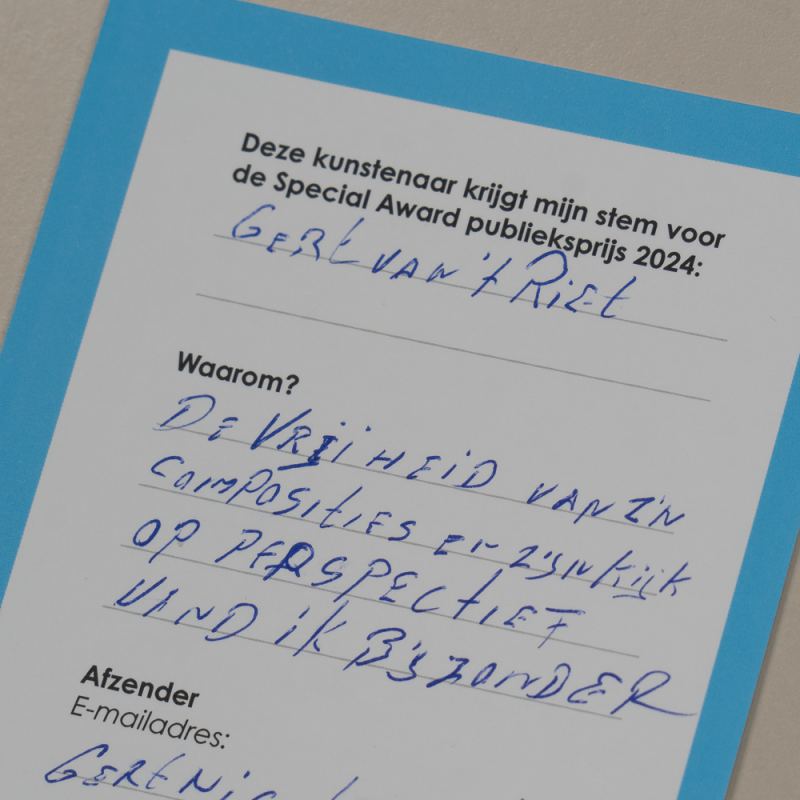 Deze kunstenaar krijgt mijn stem voor
de Special Award publieksprijs 2024:
GERt VAN 't RiEt
Waarom?
DE VRIJHEID VAN Z'N
COMPOSITIES EN Z'IJN KIJK
OP PERSPECTIEF
VIND IK BIJZONDER
Afzender
E-mailadres: